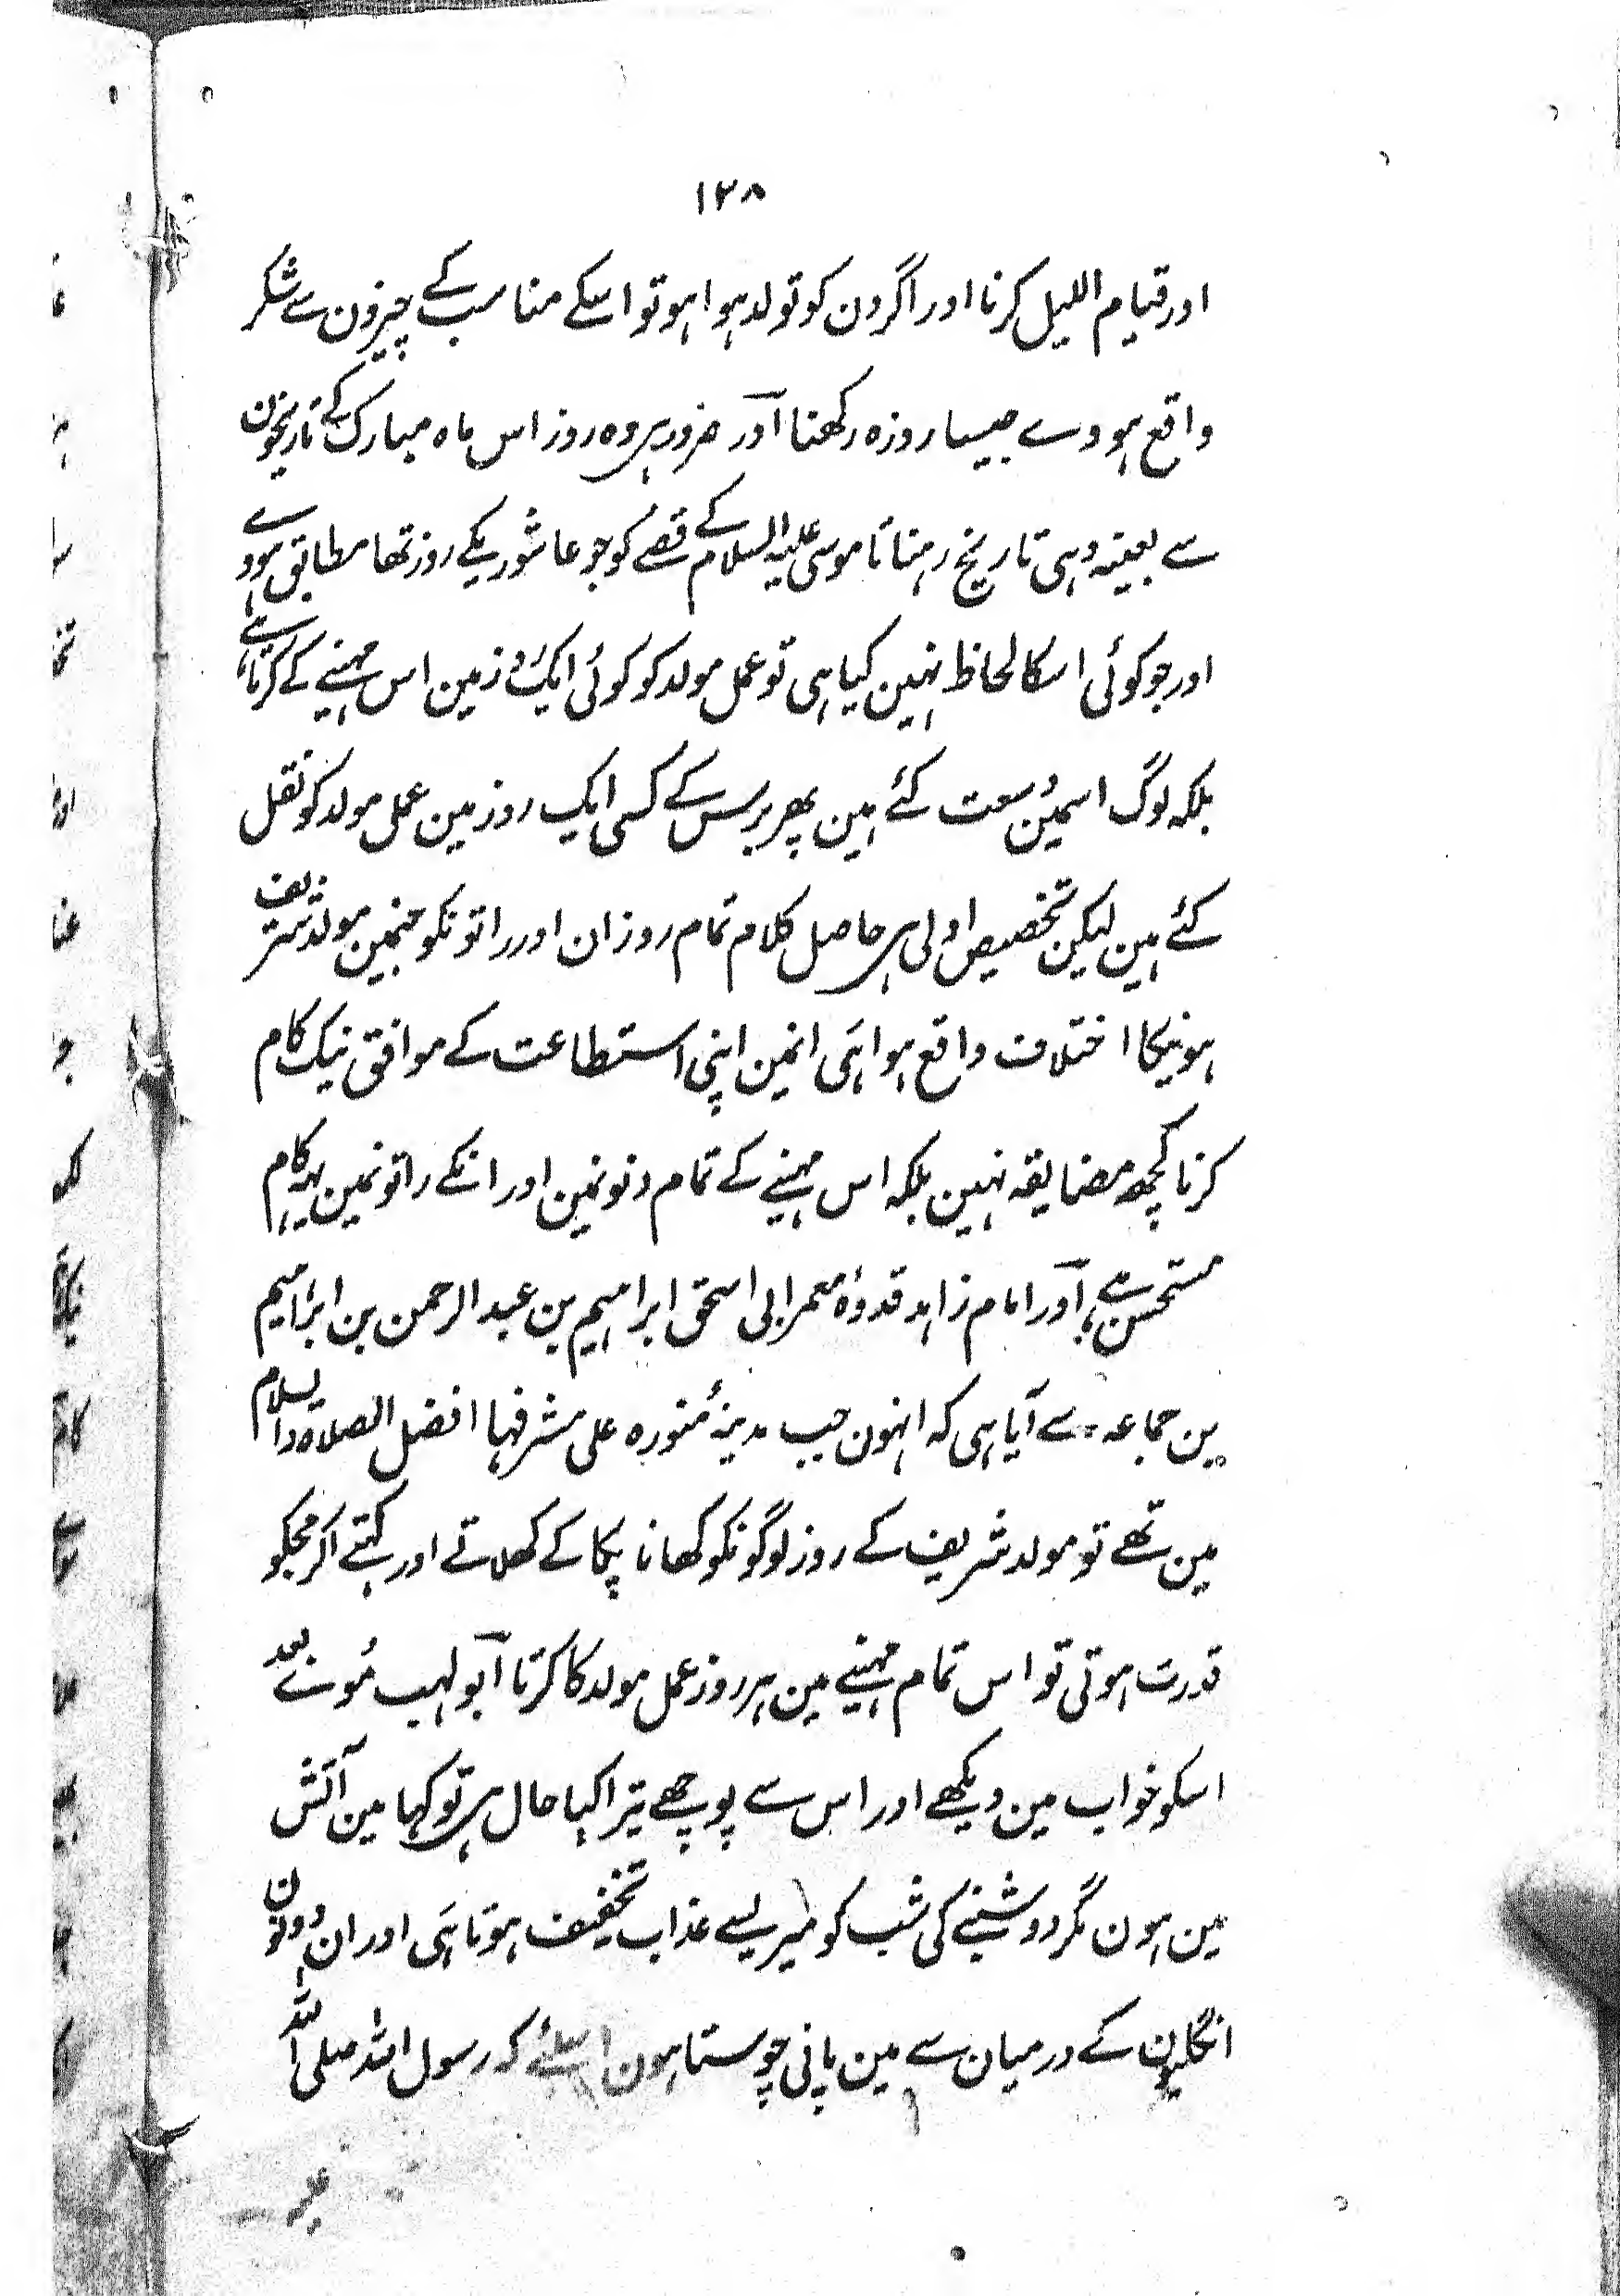 ۱۲۸
اور قیام اللیل کرنا اور اگر دن کو تولد ہوا ہو تو اسکے مناسب کے چیزون سے شکر
واقع ہووے جیسا روزہ رکھنا آور ضرور ہی وہ روز اس ماہ مبارک کے تاریخون
سے بعینہ وہی تاریخ رہنا تا موسی علیہ السلام کے قصے کو جو عاشوریکے روز تھا مطابق ہووے
اور جو کوئی اسکا لحاظ نہین کیا ہی تو عمل مولد کو کوئی ایک روز مین اس مہینے کے کرتا ہے
بلکہ لوگ اسمین وسعت کئے ہین پھر برس کے کسی ایک روز مین عمل مولد کو نقل
کئے ہین لیکن تخصیص اولی ہی حاصل کلام تمام روزان اور راتونکو جنمین مولد شریف
ہونیکا اختلاف واقع ہوا ہَی انمین اپنی استطاعت کے موافق نیک کام
کرنا کچھ مضایقہ نہین بلکہ اس مہینے کے تمام دنونمین اور انکے راتونمین یہہ کام
مستحسن ہے، آور امام زاہد قدوۂ معمر ابی اسحق ابراہیم بن عبد الرحمن بن ابراہیم
بن جماعہ سے آیا ہی کہ انہون جب مدینۂ منورہ علی مشرفہا افضل الصلاۃ والسلام
مین تھے تو مولد شریف کے روز لوگونکو کھانا پکا کے کھلاتے اور کہتے اگر مجکو
قدرت ہوتی تو اس تمام مہینے مین ہر روز عمل مولد کا کرتا آبو لہب مُوے بعد
اسکو خواب مین دیکھے اور اس سے پوچھے تیرا کیا حال ہی تو کہا مین آتش
مین ہون مگر دو شنبے کی شب کو میریسے عذاب تخفیف ہوتا ہَی اور ان دونون
انگلیون کے درمیان سے مین پانی چوستا ہون اسلئے کہ رسول اللہ صلی اللہ
علیہ